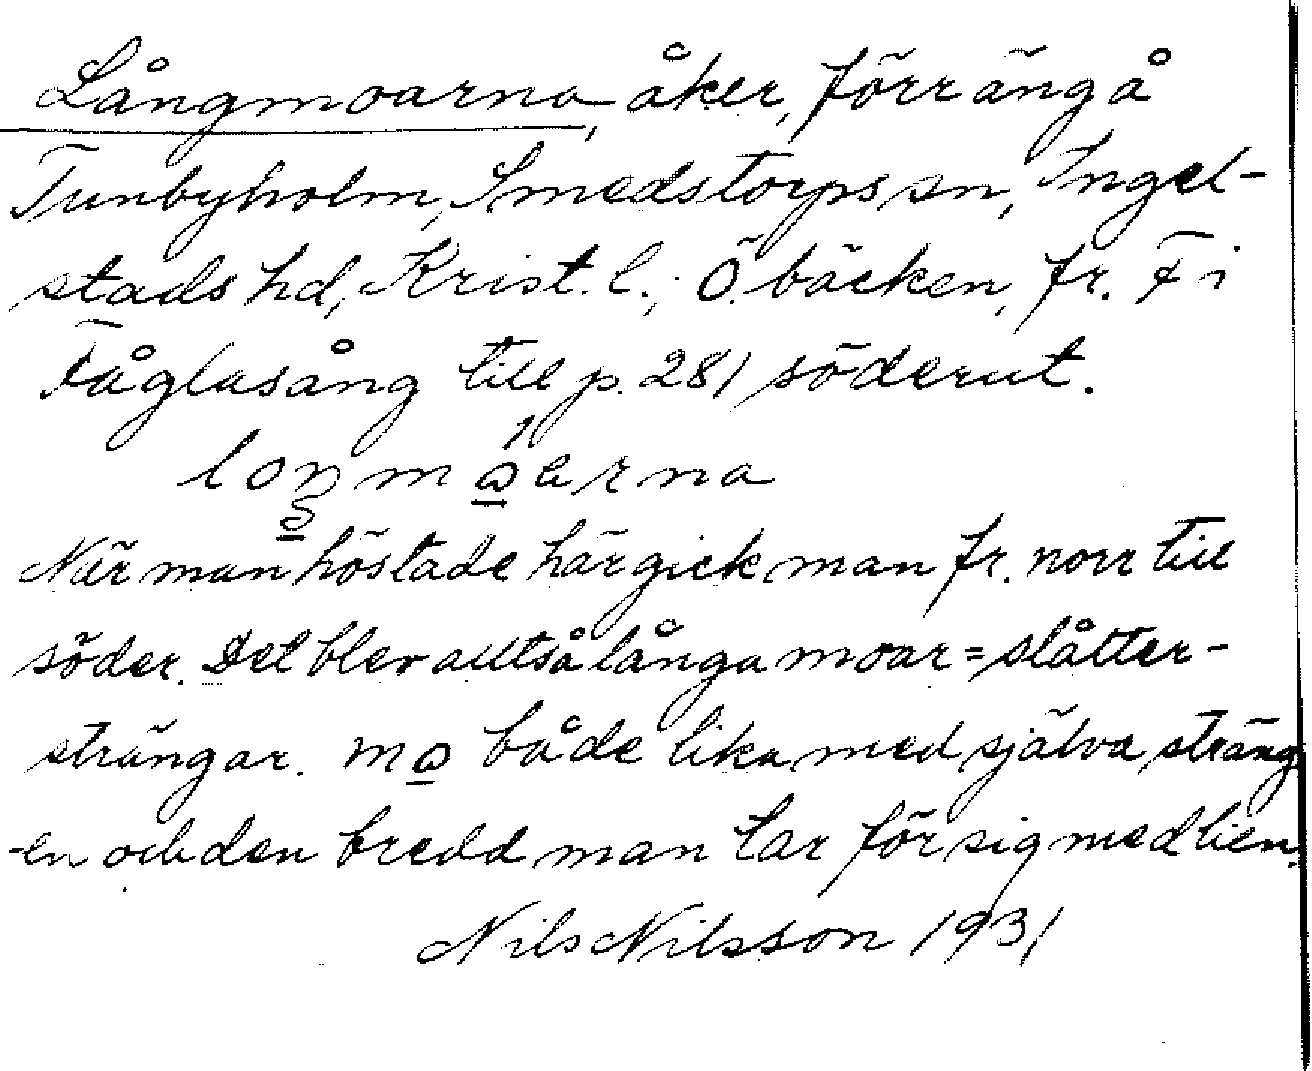 Långmoarna, åker, förr äng å
Tunbyholm, Smedstorps sn, Ingel-
stads hd, Krist. l.; Ö. bäcken, fr. F i
Fåglasång till p. 281 söderut.
loŋmo̲arna
När man höstade här gick man fr. norr till
söder. Det blev alltså långa moar = slåtter-
strängar. mo̲ både lika med själva sträng
-en och den bredd man tar för sig med lien.
Nils Nilsson 1931